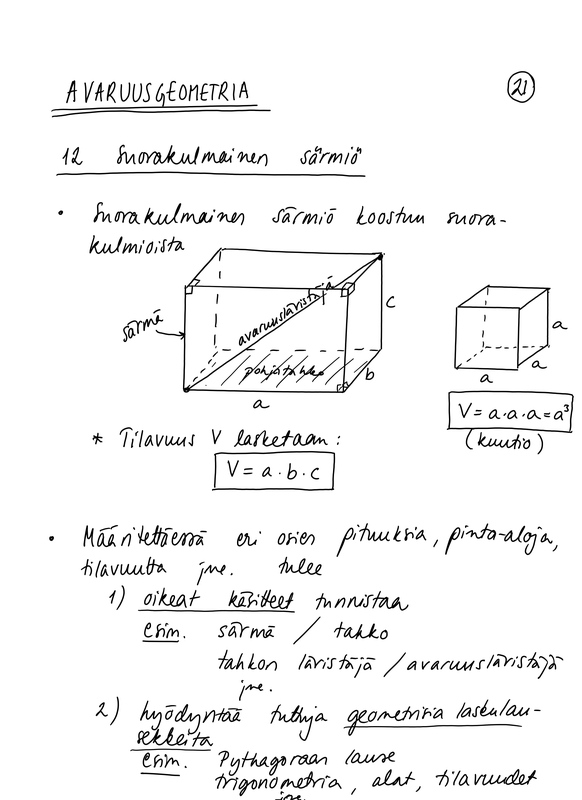 AVARUUSGEOMETRIA
21
12 Suorakulmainen särmiö
• Suorakulmainen särmiö koostuu suora-
kulmioista
särmä
avaruuslävistäjä
pohjatahko
a
b
c
a
a
a
V = a·a·a = a³
(kuutio)
* Tilavuus V lasketaan:
V = a·b·c
• Määritettäessä eri osien pituuksia, pinta-aloja,
tilavuutta jne. tulee
1) oikeat käsitteet tunnistaa
esim. särmä / tahko
tahkon lävistäjä / avaruuslävistäjä
jne.
2) hyödyntää tuttuja geometrisia laskulau-
sekkeita
esim. Pythagoraan lause
trigonometria, alat, tilavuudet
jne.